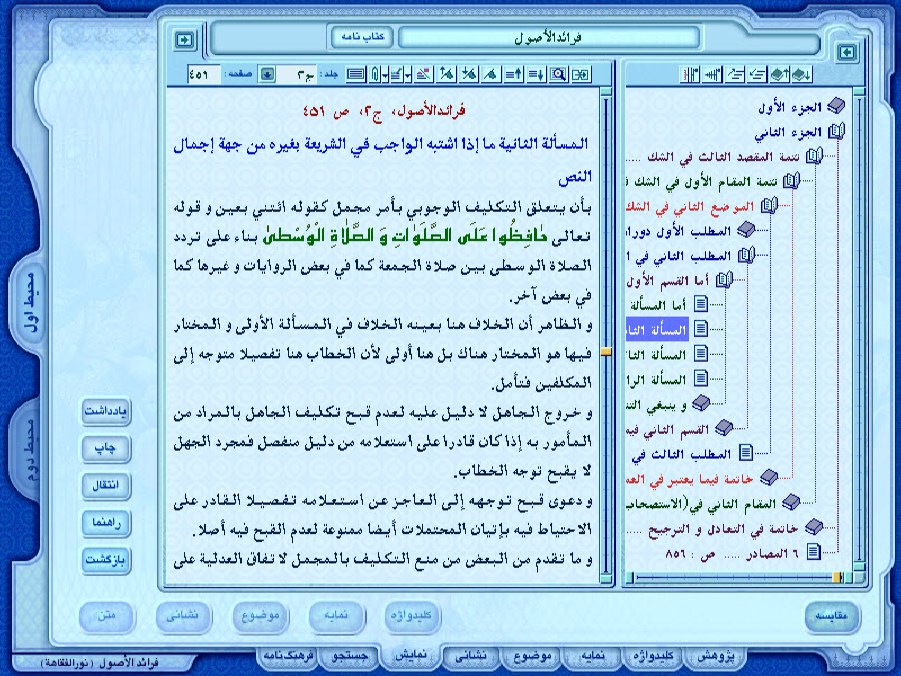 فرائدالأصول
کتاب نامه
جلد: ج٢ صفحه: ٤٥٦
فرائدالأصول، ج٢، ص ٤٥٦
المسألة الثانية ما إذا اشتبه الواجب في الشريعة بغيره من جهة إجمال
النص
بأن يتعلق التكليف الوجوبي بأمر مجمل كقوله ائتني بعين و قوله
تعالى حٰافِظُوا عَلَى الصَّلَوٰاتِ وَ الصَّلٰاةِ الْوُسْطىٰ بناء على تردد
الصلاة الوسطى بين صلاة الجمعة كما في بعض الروايات و غيرها كما
في بعض آخر.
و الظاهر أن الخلاف هنا بعينه الخلاف في المسألة الأولى و المختار
فيها هو المختار هناك بل هنا أولى لأن الخطاب هنا تفصيلا متوجه إلى
المكلفين فتأمل.
و خروج الجاهل لا دليل عليه لعدم قبح تكليف الجاهل بالمراد من
المأمور به إذا كان قادرا على استعلامه من دليل منفصل فمجرد الجهل
لا يقبح توجه الخطاب.
و دعوى قبح توجهه إلى العاجز عن استعلامه تفصيلا القادر على
الاحتياط فيه بإتيان المحتملات أيضا ممنوعة لعدم القبح فيه أصلا.
و ما تقدم من البعض من منع التكليف بالمجمل لاتفاق العدلية على
الجزء الأول
الجزء الثاني
تتمة المقصد الثالث في الشك .....
تتمة المقام الأول في الشك ف
الموضع الثاني في الشك
المطلب الأول دورا
المطلب الثاني في ا
أما القسم الأول
أما المسألة
المسألة الثا
المسألة الثا
المسألة الرا
و ينبغي الت
القسم الثاني فيم
المطلب الثالث في
خاتمة فيما يعتبر في العم
المقام الثاني في(الاستصحاب
خاتمة في التعادل و الترجيح .....
٦ المصادر ..... ص : ٨٥٦
محیط اول
محیط دوم
یادداشت
چاپ
انتقال
راهنما
بازگشت
مقایسه
کلیدواژه
نمایه
موضوع
نشانی
متن
پژوهش
کلیدواژه
نمایه
موضوع
نشانی
نمایش
جستجو
فرهنگ‌نامه
فرائد الأصول (نورالفقاهة)